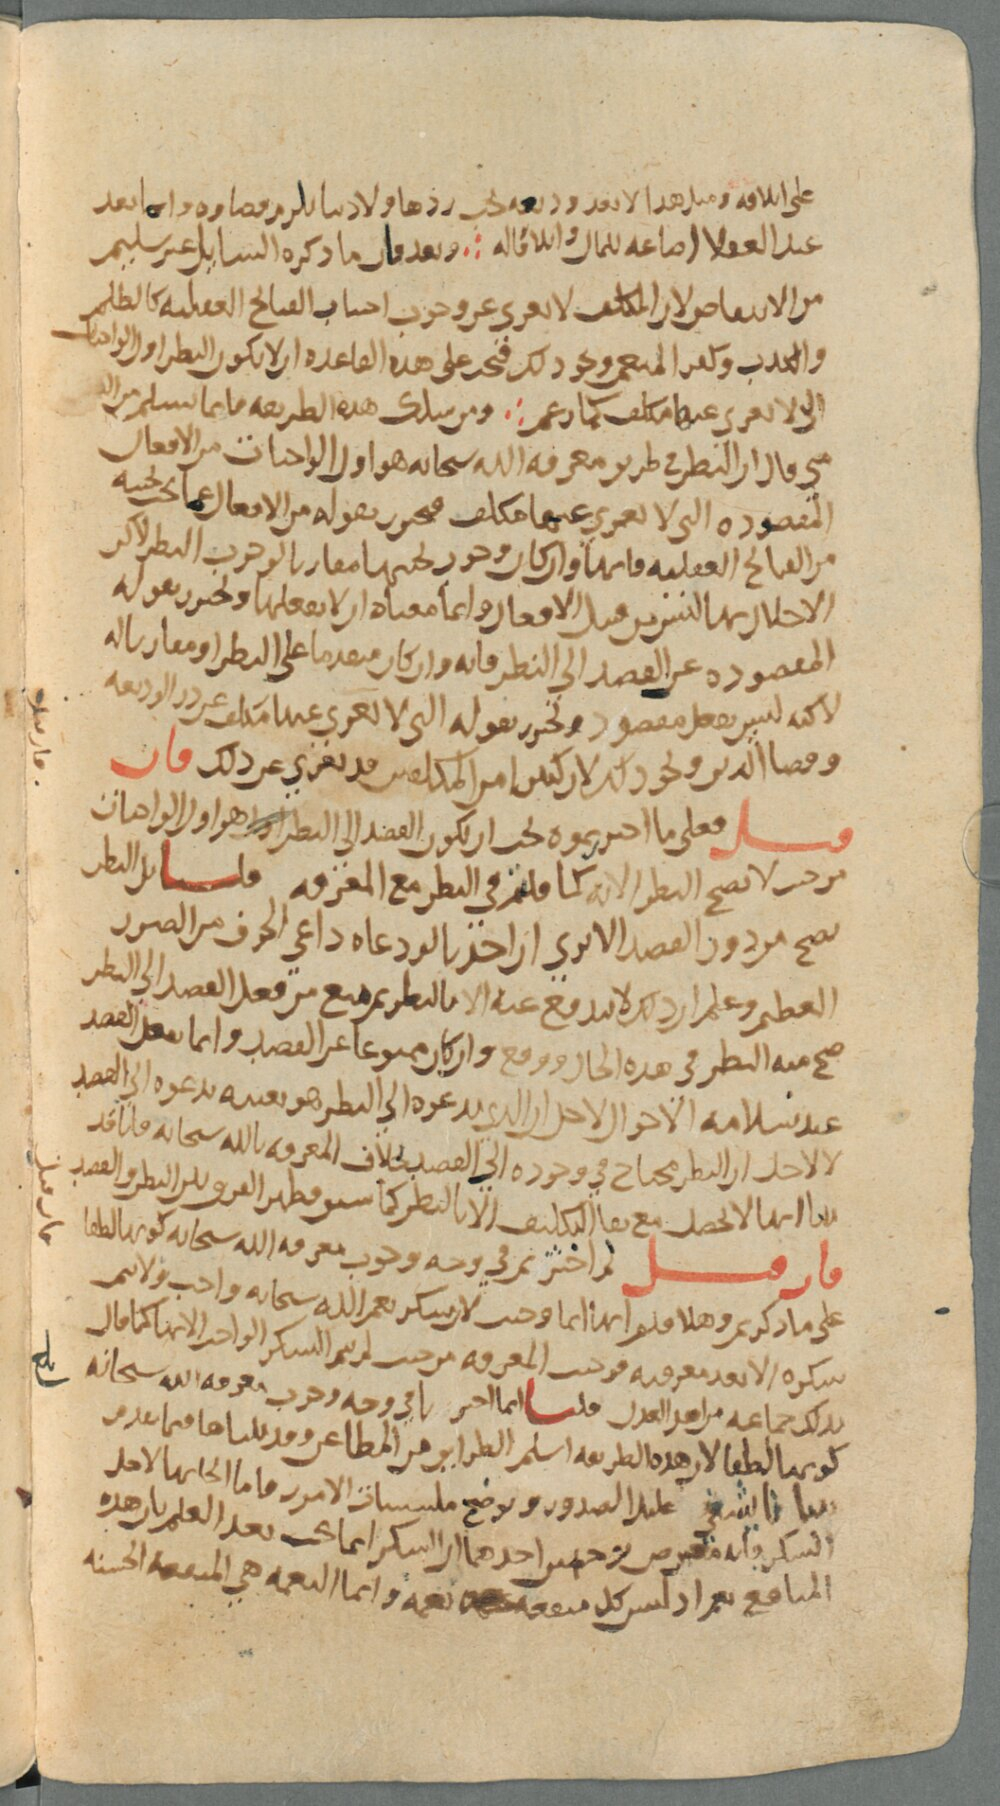 على اتلافه ومثل هذا لا يعد وديعه يجب ردها ولا دينا يلزم قضاوه وانما يعد
عند العقلا اضاعه للمال واتلافا له ∴ وبعد فان ما ذكره السايل غير سليم
من الانتقاض لان المكلف لا يعرى عن وجوب اجتناب القبايح العقليه كالظلم
والكذب وكفر المنعم ونحو ذلك فيجب على هذه القاعده ان لا يكون النظر اول الواجبات
التي لا يعرى عنها مكلف كما زعم ∴ ومن سلك هذه الطريقه فانما يسلم من
متى قال ان النظر في طريق معرفه الله سبحانه هو اول الواجبات من الافعال
المقصوده التي لا يعرى عنها مكلف فيحترز بقوله من الافعال عما يجب تجنبه
من القبايح العقليه فانها وان كان وجوب تجنبها مقارنا لوجوب النظر لاكن
الاخلال بها ليس من قبيل الافعال وانما معناه ان لا يفعلها ويحترز بقوله
المقصوده عن القصد الى النظر فانه وان كان متقدما على النظر او مقارنا له
لاكنه ليس بفعل مقصود ويحترز بقوله التي لا يعرى عنها مكلف عن رد الوديعه
وقضا الدين ونحو ذلك لان كثيرا من المكلفين قد يعرى عن ذلك فان
قيل فعلى ما اخترتموه يجب ان يكون القصد الى النظر هو اول الواجبات
من حيث لا يصح النظر الا به كما قلتم في النظر مع المعرفه قلنا بل النظر
يصح من دون القصد الا ترى ان احدنا لو دعاه داعي الخوف من الضرر
العظيم وعلم ان ذلك لا يندفع عنه الا بالنظر ثم منع من فعل القصد الى النظر
صح منه النظر في هذه الحال ووقع وان كان ممنوعا عن القصد وانما يفعل القصد
عند سلامه الاحوال لاجل ان الذي يدعوه الى النظر هو بعينه يدعوه الى القصد
لا لاجل ان النظر محتاج في وجوده الى القصد بخلاف المعرفه بالله سبحانه فانا قد
بينا انها لا تحصل مع بقا التكليف الا بالنظر كما سبق فظهر الفرق بين النظر والقصد
فان قيل لم اخترتم في وجه وجوب معرفه الله سبحانه كونها لطفا
على ما ذكرتم وهلا قلتم انها انما وجبت لان شكر نعم الله سبحانه واجب ولا يتم
شكره الا بعد معرفته فوجبت المعرفه من حيث لم يتم الشكر الواجب الا بها كما قال
بذلك جماعه من اهل العدل قلنا انما اخترنا في وجه وجوب معرفه الله سبحانه
كونها لطفا لان هذه الطريقه اسلم الطرايق من المطاعن وقد بيناها فيما تقدم
بيانا يشفي غليل الصدور ويوضح ملتبسات الامور فاما ايجابها لاجل
الشكر فانه معترض من وجهين احدهما ان الشكر انما يجب بعد العلم بان هذه
المنافع نعم اذ ليس كل منفعه نعمه وانما النعمه هي المنفعه الحسنه
فان قيل
فان قيل
بلغ